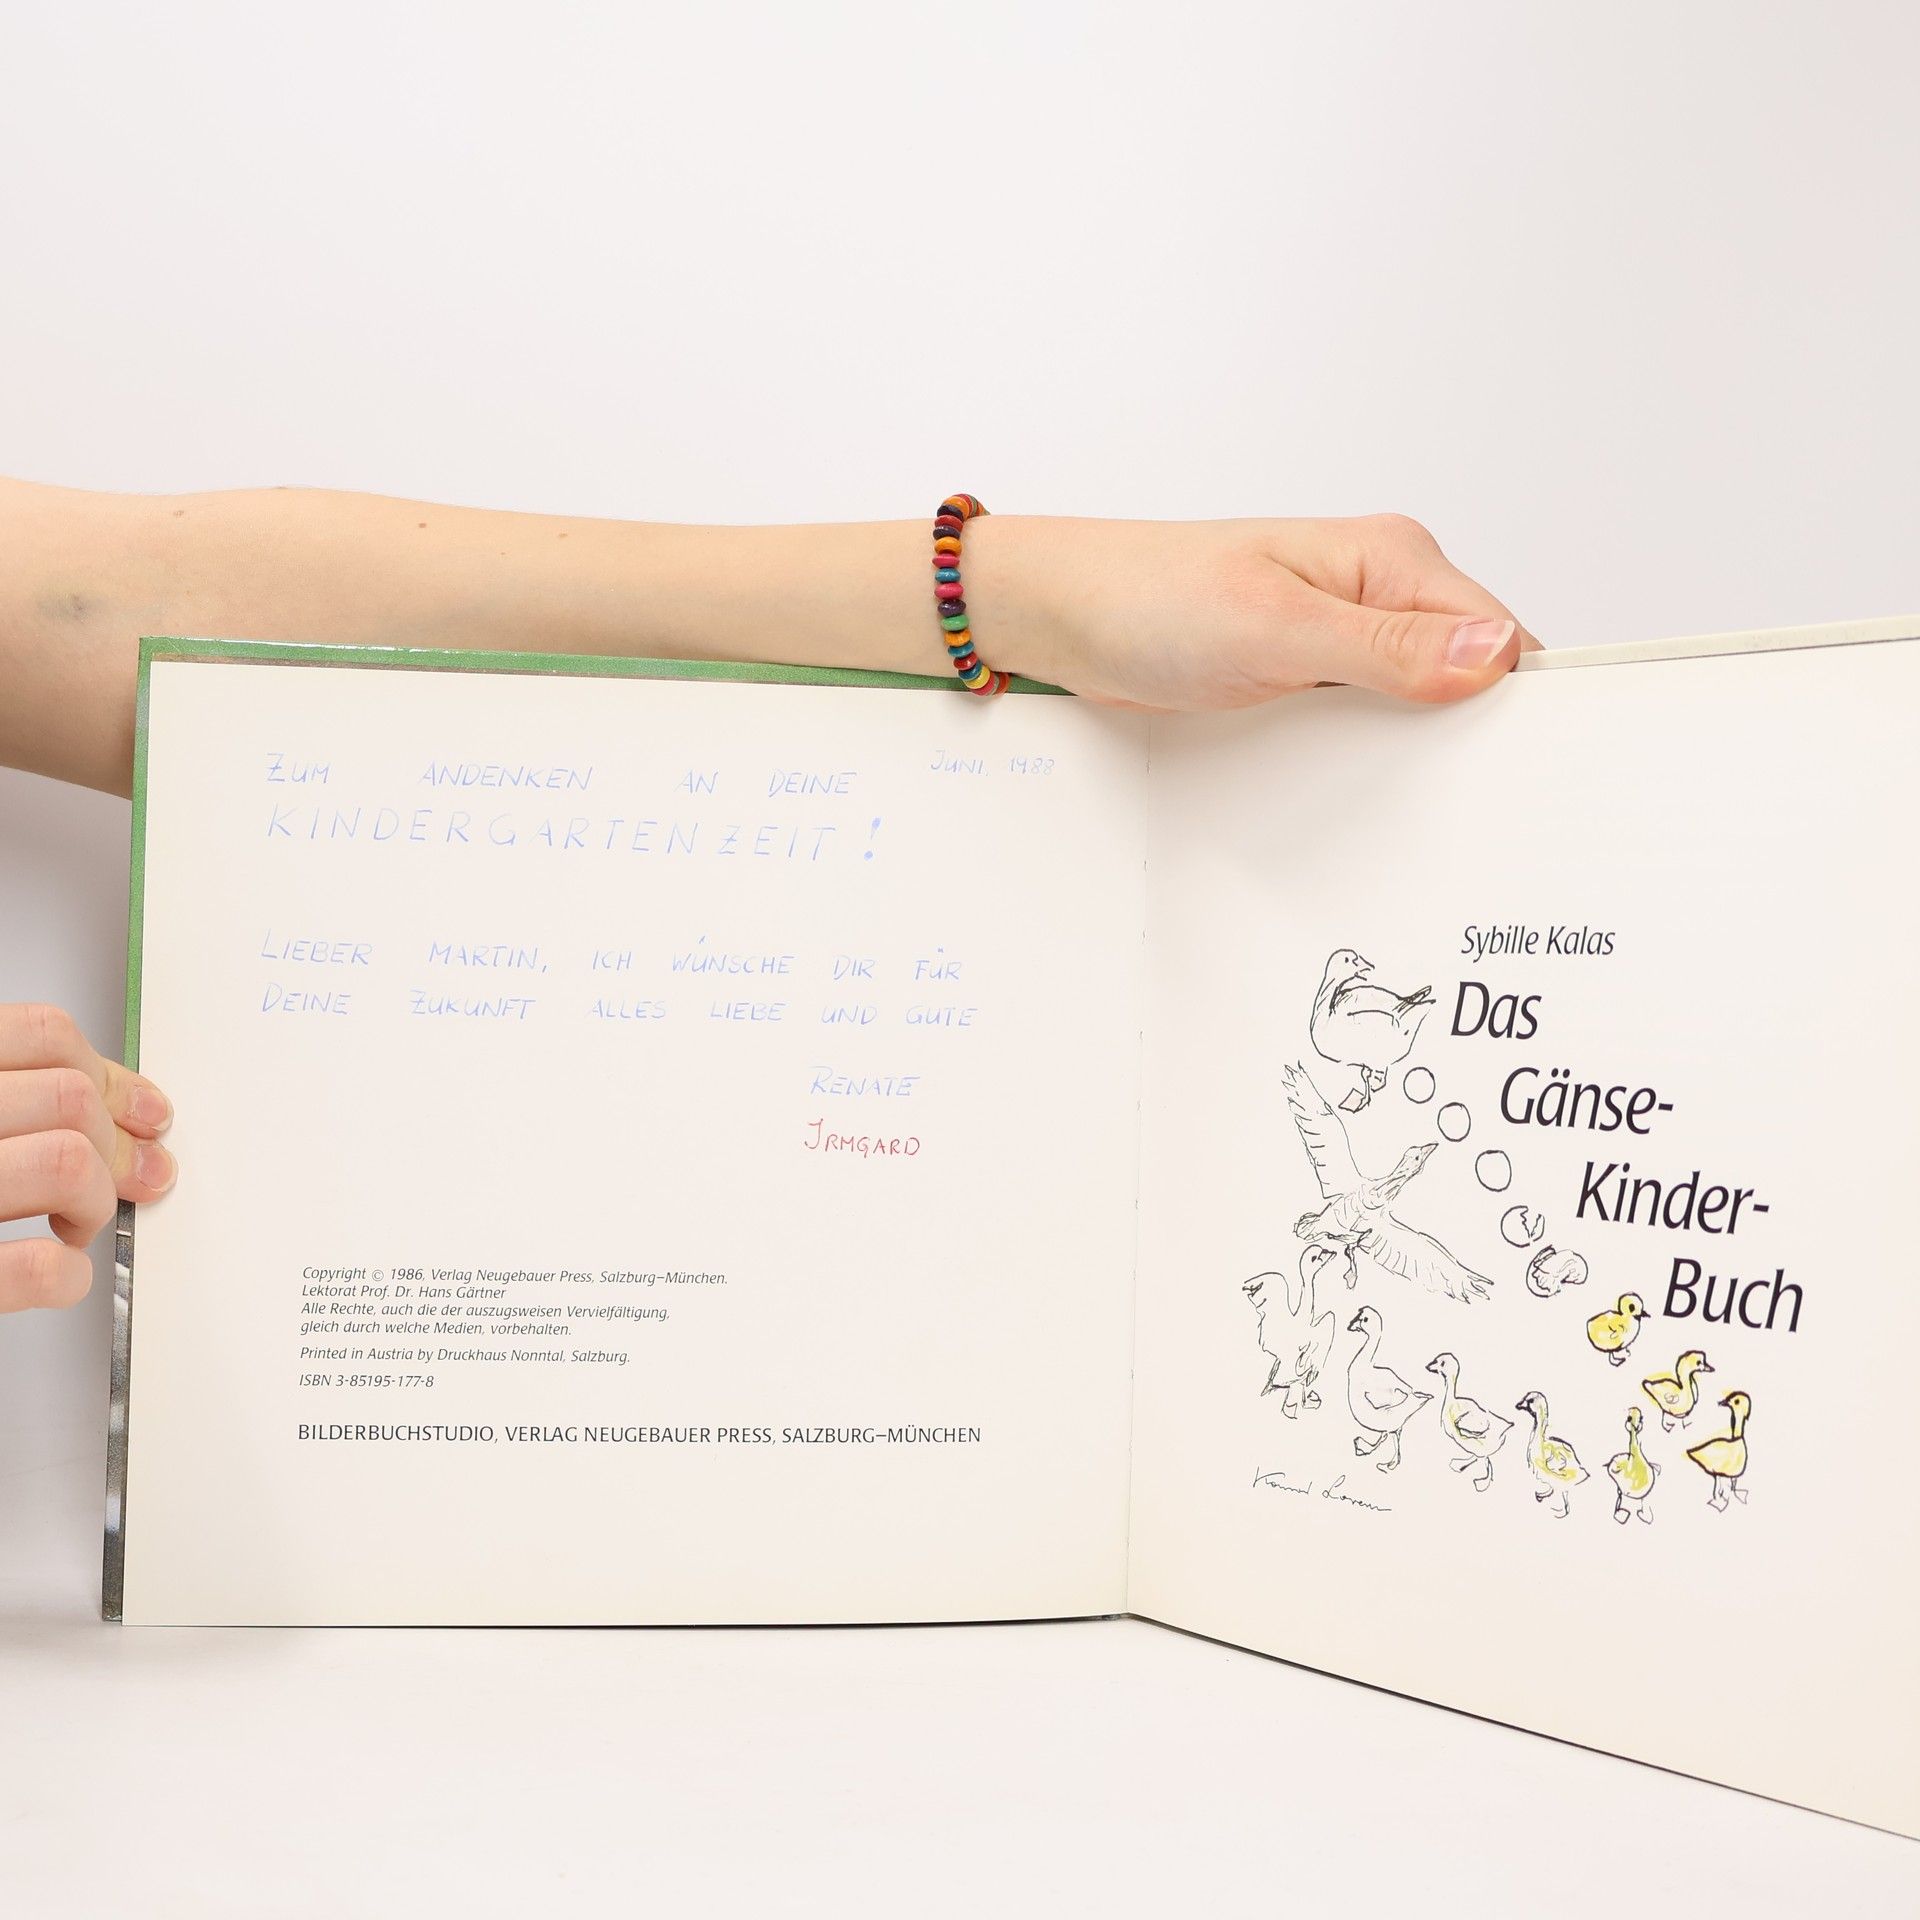 ZUM ANDENKEN AN DEINE JUNI, 1988
KINDERGARTENZEIT!
LIEBER MARTIN, ICH WÜNSCHE DIR FÜR
DEINE ZUKUNFT ALLES LIEBE UND GUTE
RENATE
IRMGARD
Copyright © 1986, Verlag Neugebauer Press, Salzburg–München.
Lektorat Prof. Dr. Hans Gärtner
Alle Rechte, auch die der auszugsweisen Vervielfältigung,
gleich durch welche Medien, vorbehalten.
Printed in Austria by Druckhaus Nonntal, Salzburg.
ISBN 3-85195-177-8
BILDERBUCHSTUDIO, VERLAG NEUGEBAUER PRESS, SALZBURG–MÜNCHEN
Sybille Kalas
Das
Gänse-
Kinder-
Buch
Konrad Lorenz